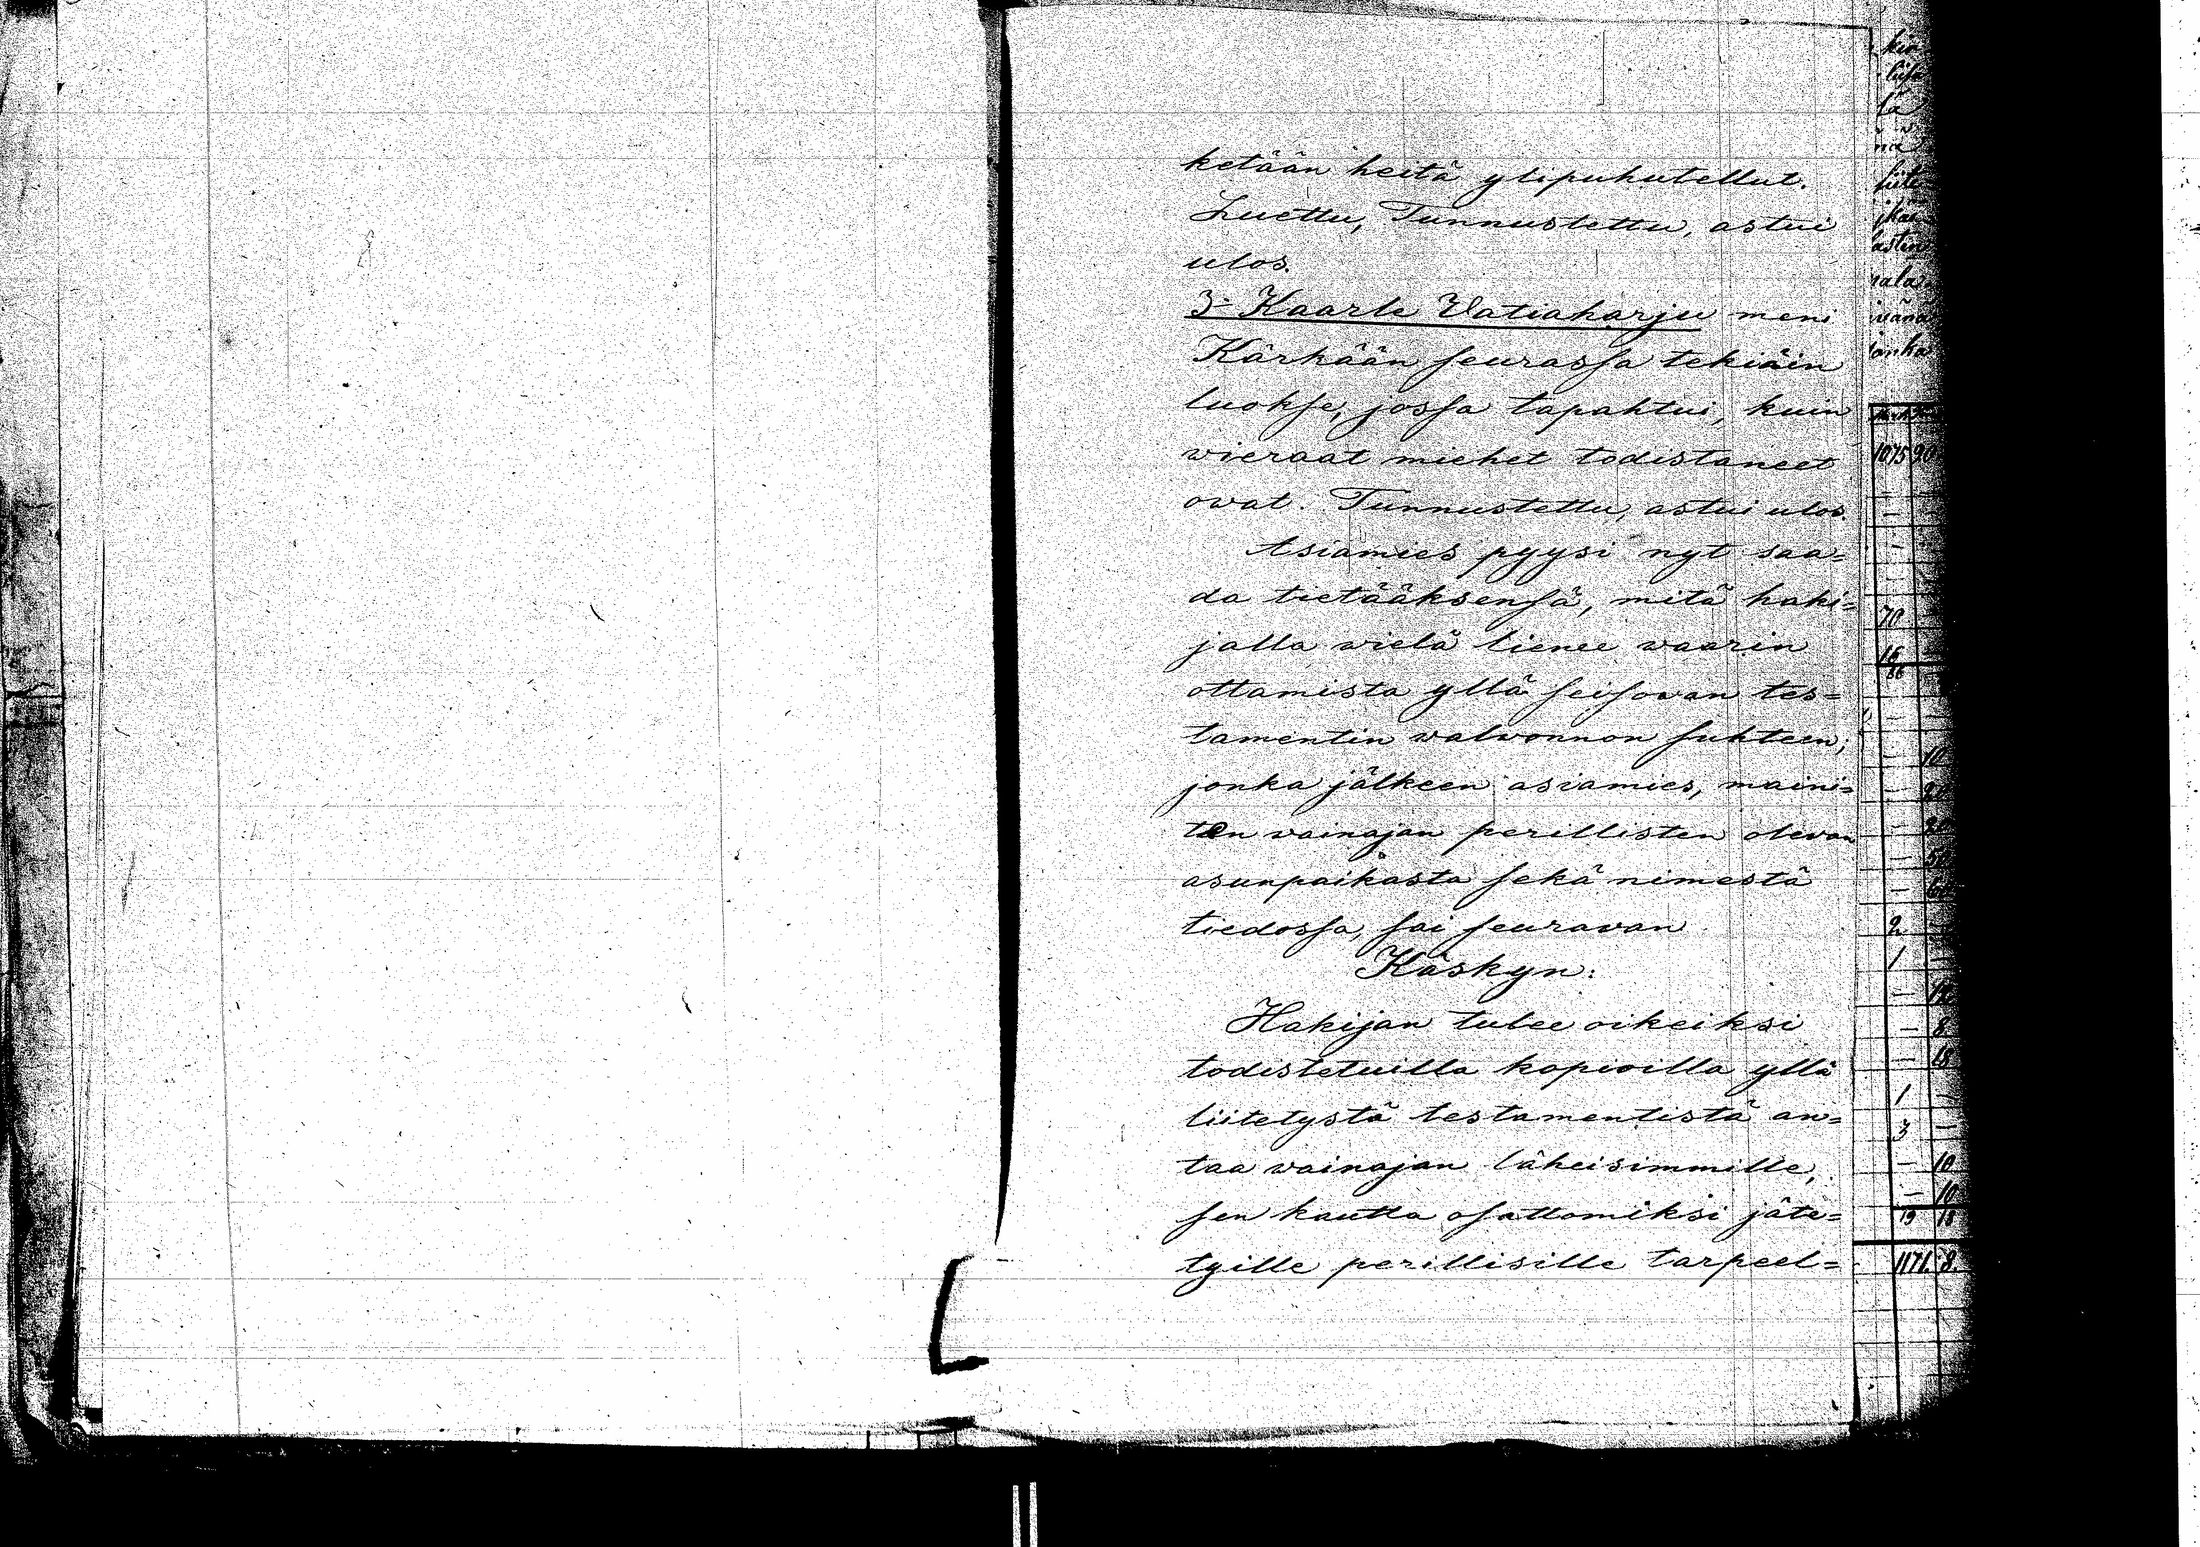 ketään heitä ylipuhutellut.
Luettu, Tunnustettu, astui
ulos.
3- Kaarle Vatiaharju meni
Kärkään seurassa tekiäin
luokse, jossa tapahtui, kuin
wieraat miehet todistaneet
owat. Tunnustettu, astui ulos.
Asiamies pyysi nyt saa=
da tietääksensä, mitä haki=
jalla wielä lienee waarin
ottamista yllä seisowan tes=
tamentin walwonnon suhteen;
jonka jälkeen asiamies, maini=
ten wainajan perillisten olewan
asunpaikasta sekä nimestä
tiedossa, sai seurawan
Käskyn:
Hakijan tulee oikeiksi
todistetuilla kopioilla yllä
liitetystä testamentistä an=
taa wainajan läheisimmille,
sen kautta osattomiksi jäte=
tyille perillisille tarpeel=
kia
liisa
lä
na
siite
jkäi
lasten
wänä
jonka
1075 90
70
16
86
10
2
1
8
18
1
3
10
10
19 18
1171. 8.